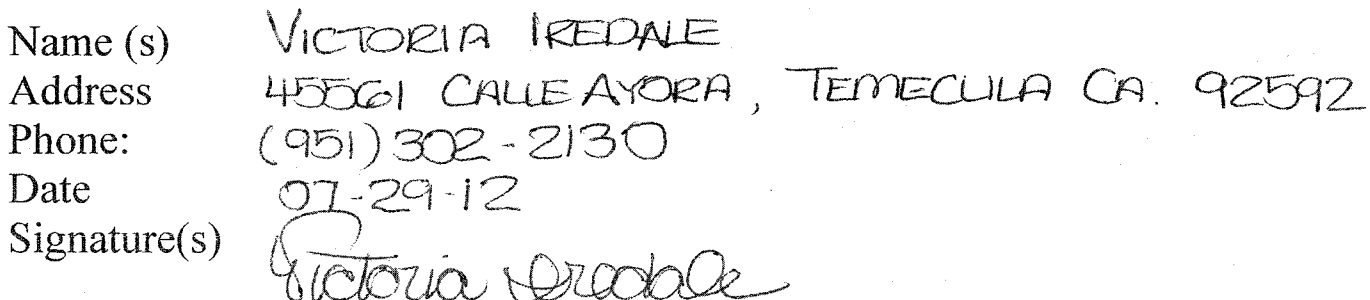 Name (s) VICTORIA IREDALE
Address 45561 CALLE AYORA, TEMECULA CA. 92592
Phone: (951) 302-2130
Date 07-29-12
Signature(s) Victoria Iredale